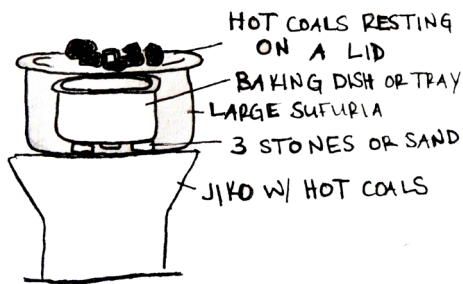 HOT COALS RESTING
ON A LID
BAKING DISH OR TRAY
LARGE SUFURIA
3 STONES OR SAND
JIKO W/ HOT COALS